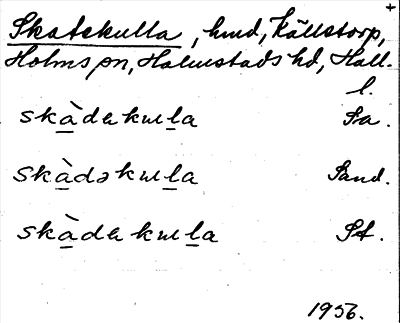 +
Skatekulla, hmd, Källstorp,
Holms sn, Halmstads hd, Hall.
l.
skàdekulla Fa.
skàdəkulla Sand.
skàdekulla St.
1956.